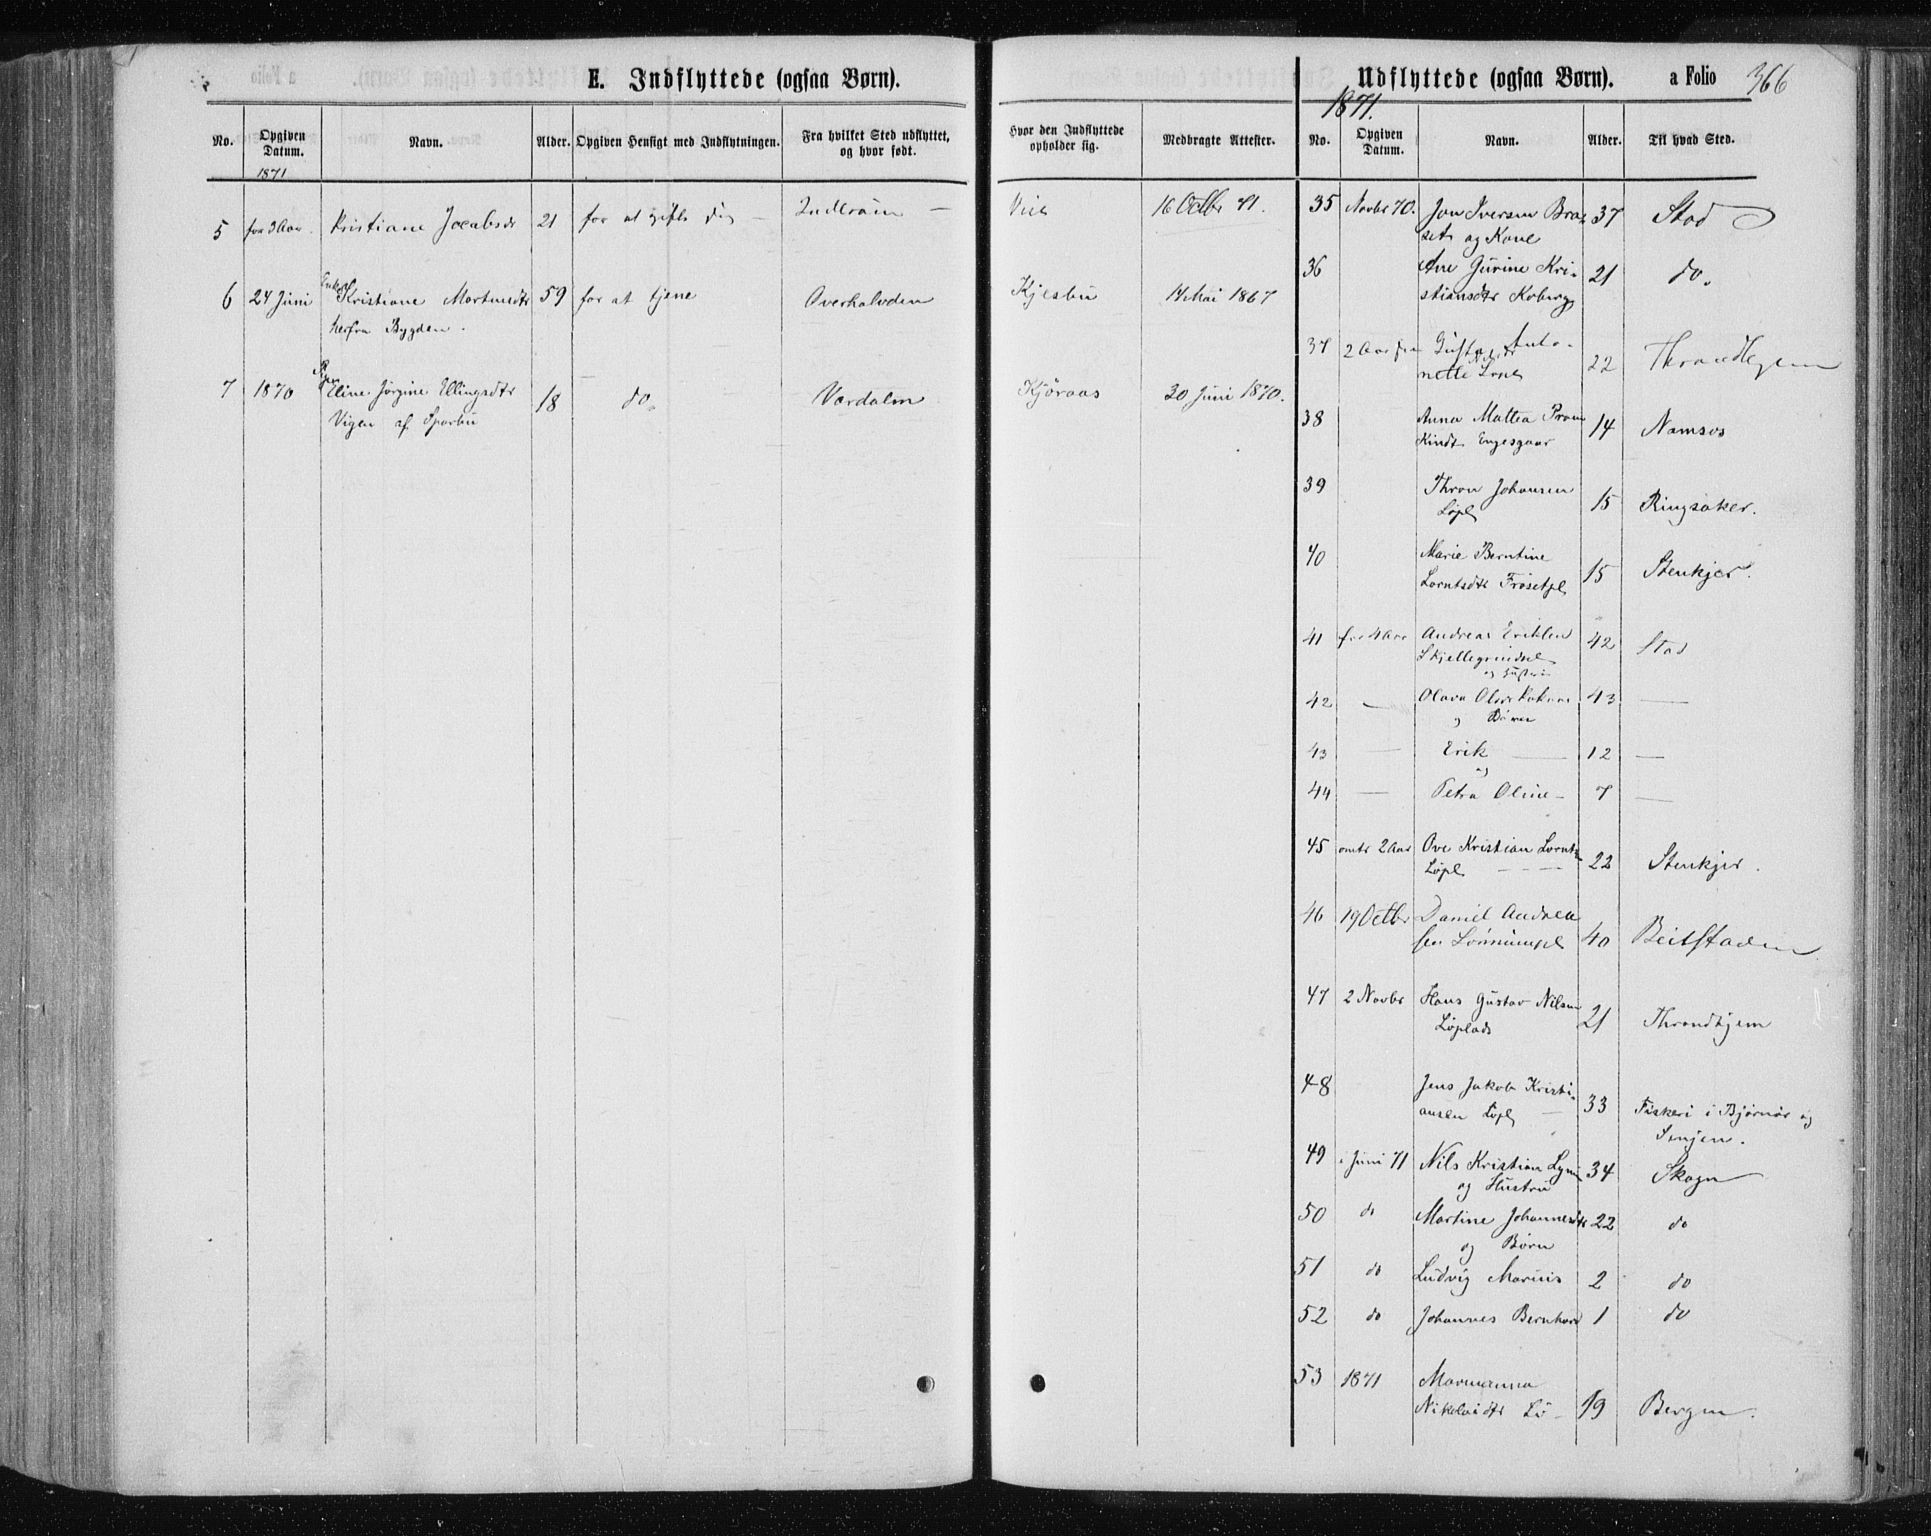 E. Indflyttede (ogsaa Børn).
No.
Opgiven Datum.
Navn.
Alder.
Opgiven Hensigt med Indflytningen.
Fra hvilket Sted udflyttet, og hvor født.
Hvor den Indflyttede opholder sig.
Medbragte Attester.
1871
5 for 3 Aar. Kristiane Jacobsdr 21 for at gifte sig Inderøen 16 Octbr 71.
6 24 Juni Enken Kristiane Martinsdtr 59 for at tjene Overhalvden Kjesbu 14 Mai 1867
herfra Bygden.
7 1870 Pigen Eline Jørgine Ellingsdtr 18 do. Værdalen Kjøraas 20 Juni 1870.
Vigen af Sparbu
Udflyttede (ogsaa Børn).
a Folio 366
1871.
No.
Opgiven Datum.
Navn.
Alder.
Til hvad Sted.
35 Novbr 70. Jon Iversen Bra- 37 Stod
set og Kone
36 Ane Gurine Kri- 21 do.
stiansdtr Koberg
37 2 Aar Gusta Anto- 22 Throndhjem
nette
38 Anna Mattea 14 Namsos
Kindt Engesgaar
39 Thron Johansen 15 Ringsaker.
Løpl
40 Marie Berntine
Lorntsdtr Frøsetpl 15 Stenkjer.
41 for 4 Aar Andreas Eriksen 42 Stod
Skjellegrindsel
og Hustru
42 — Olava Olsdr 43 —
og Børn
43 — Erik — 12 —
og
44 — Petra Oline — 7 —
45 omtr 2 Aar Ove Kristian Lornts 22 Stenkjer.
Løpl — — —
46 19 Octbr Daniel Andrea 40 Beitstaden
sen Lønnumpl
47 2 Novbr Hans Gustav Nilsen 21 Throndhjem
Løplads
48 Jens Jakob Kristi-
ansen Løpl — 33 Fiskeri i Bjørnør og
Senjen.
49 i Juni 71 Nils Kristian 34 Skogn
og Hustru
50 do Martine Johannesdtr 22 do
og Børn
51 do Ludvig Marius 2 do
52 do Johannes Bernhard 1 do
53 1871 Marmanna
Nikolaidtr Lø- 19 Bergen.